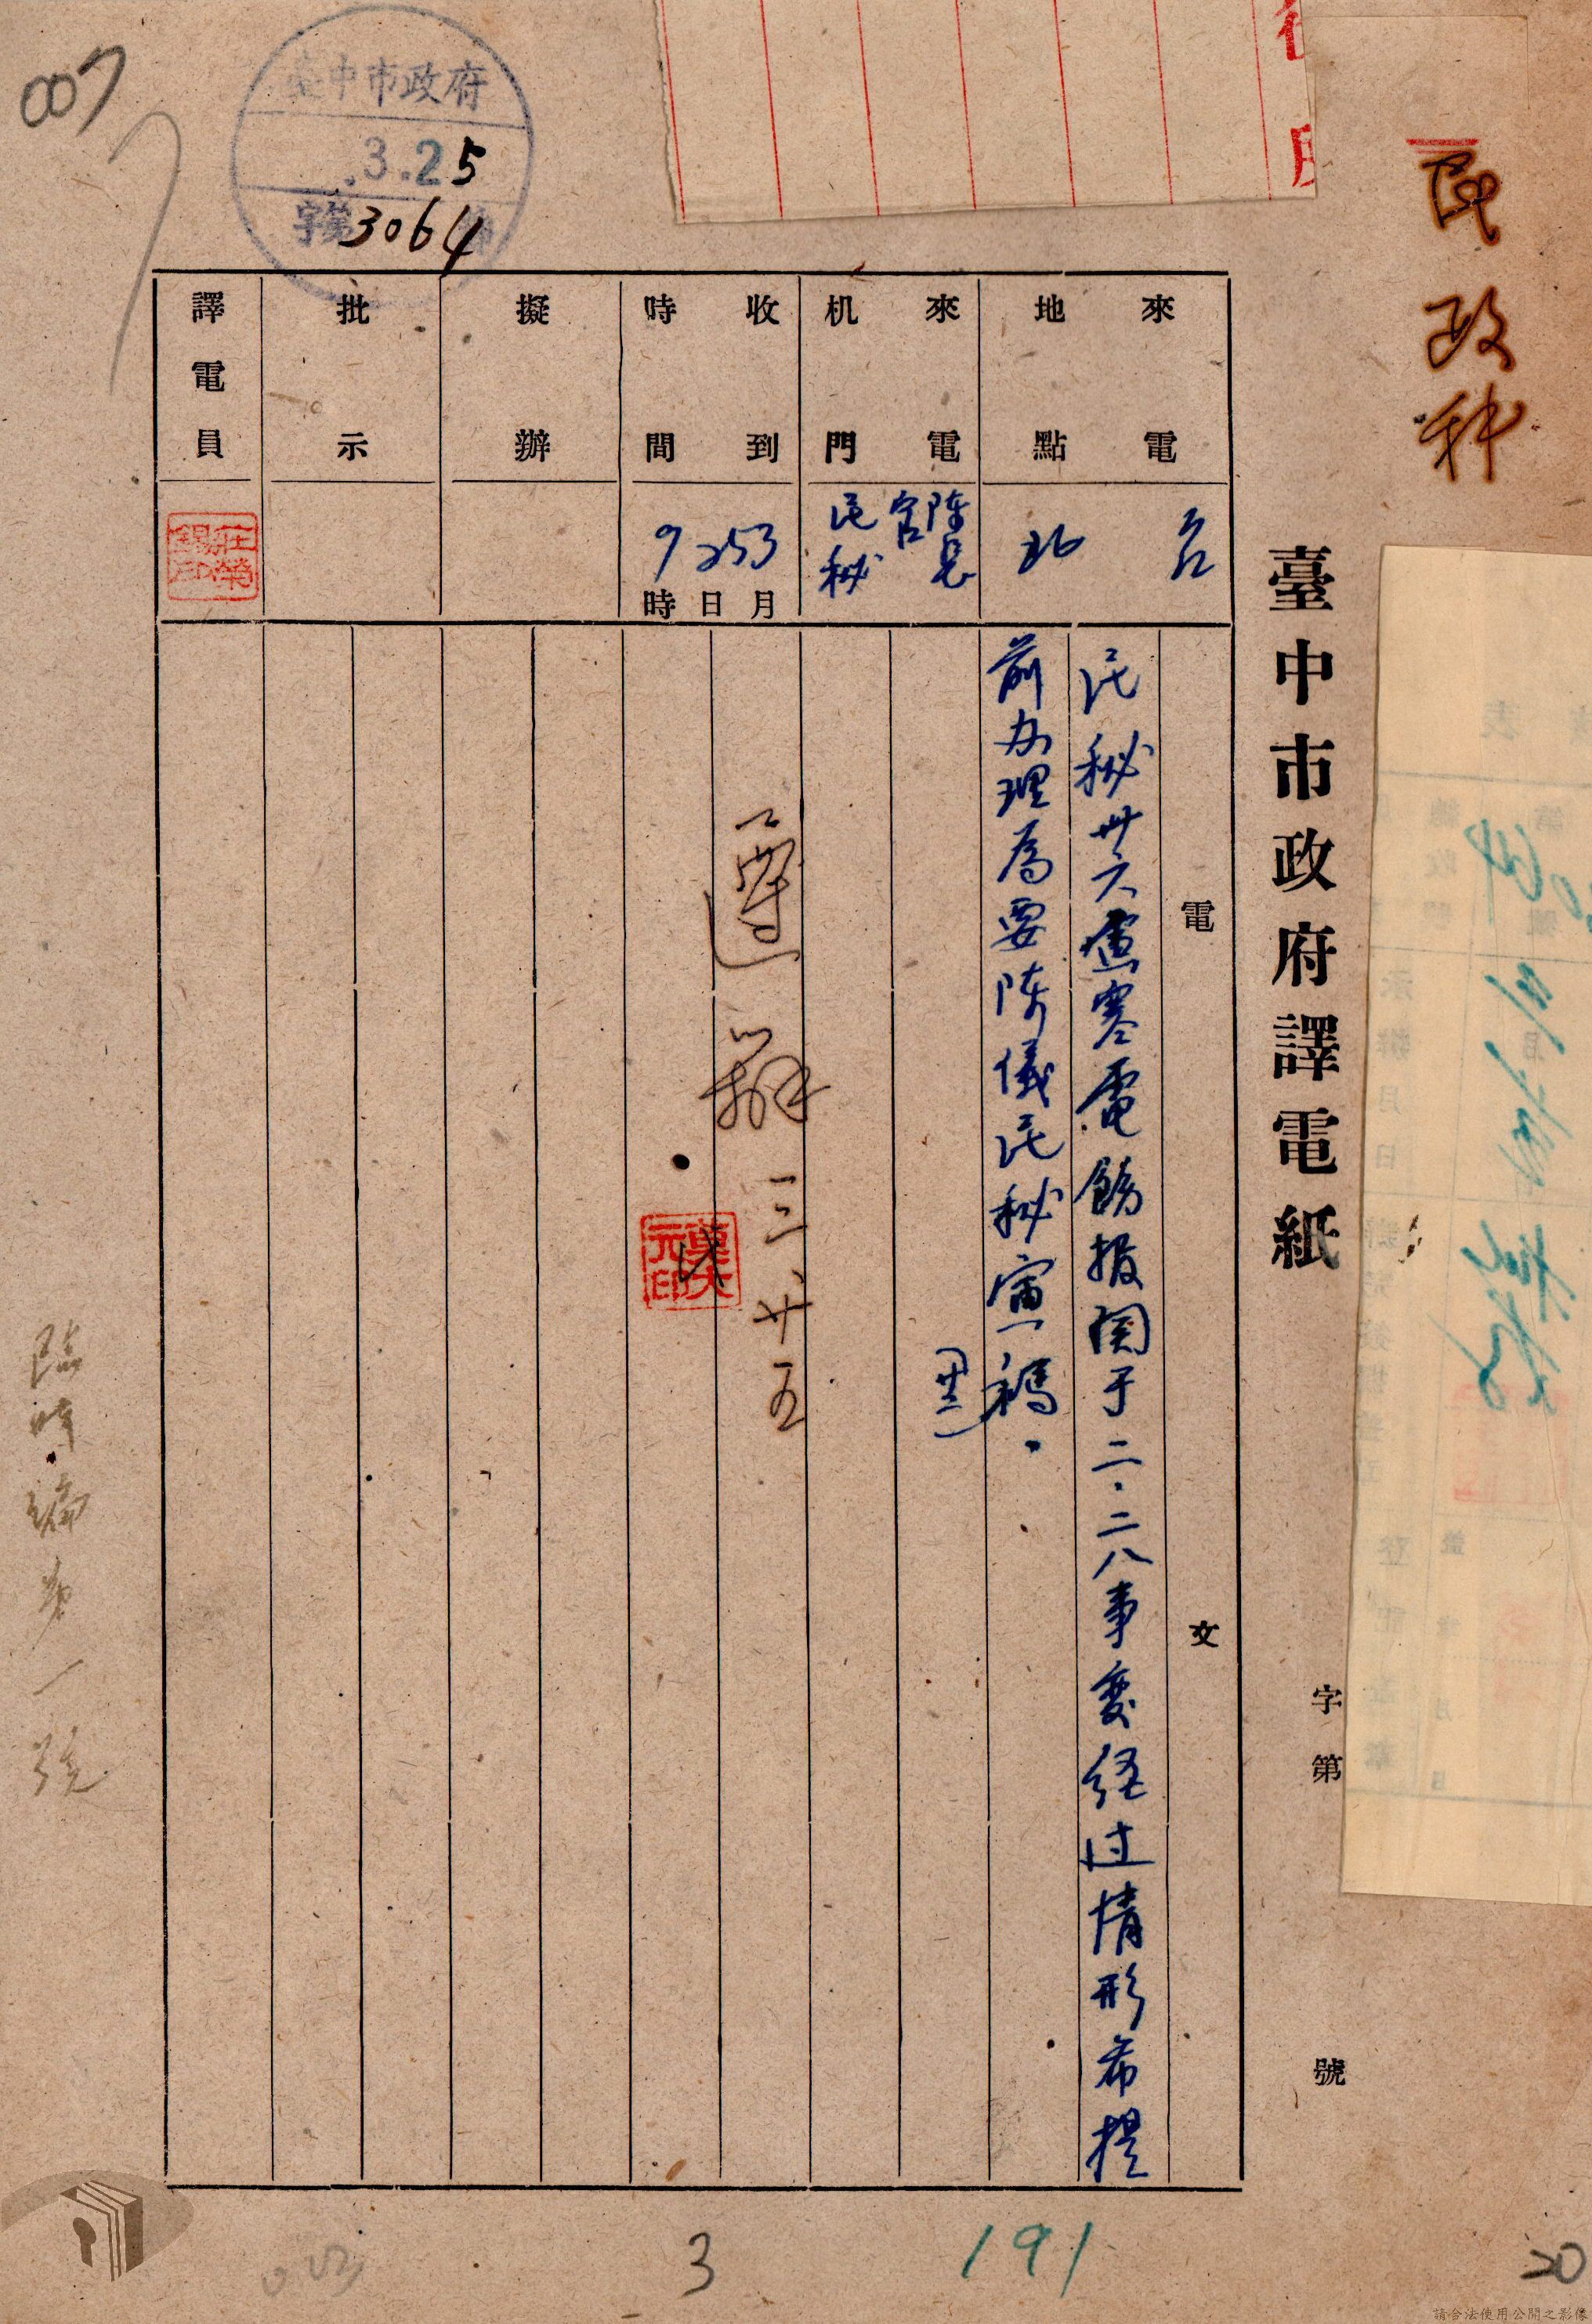 007
臺中市政府
3.25
字第3064號
民政科
臺中市政府譯電紙
字第 號
來電地點
台北
來電机門
陈長官
民秘
收到時間
3月25日9時
擬辦
批示
譯電員
電文
民秘卅六 寒電飭报関于二.二八事变経过情形希提
前办理為要陈儀民秘寅禡.
遵辦 三、廿五
元印
臨時編第一號
3
191
20
請合法使用公開之影像